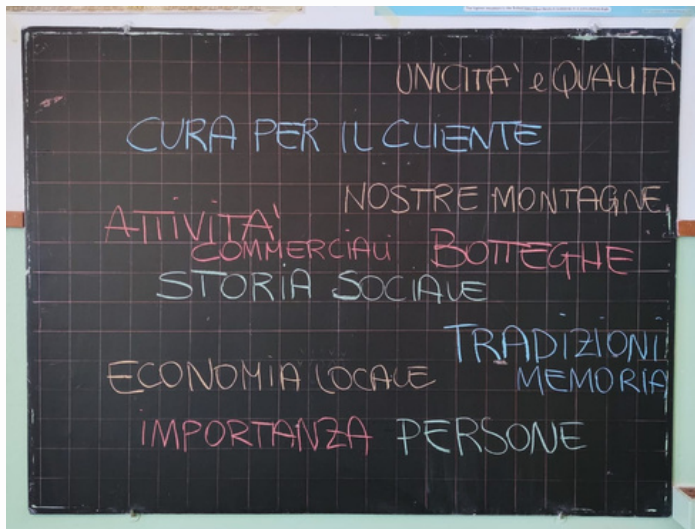 UNICITA' e QUALITA'
CURA PER IL CLIENTE
NOSTRE MONTAGNE
ATTIVITA'
COMMERCIALI BOTTEGHE
STORIA SOCIALE
TRADIZIONI
ECONOMIA LOCALE MEMORIA
IMPORTANZA PERSONE